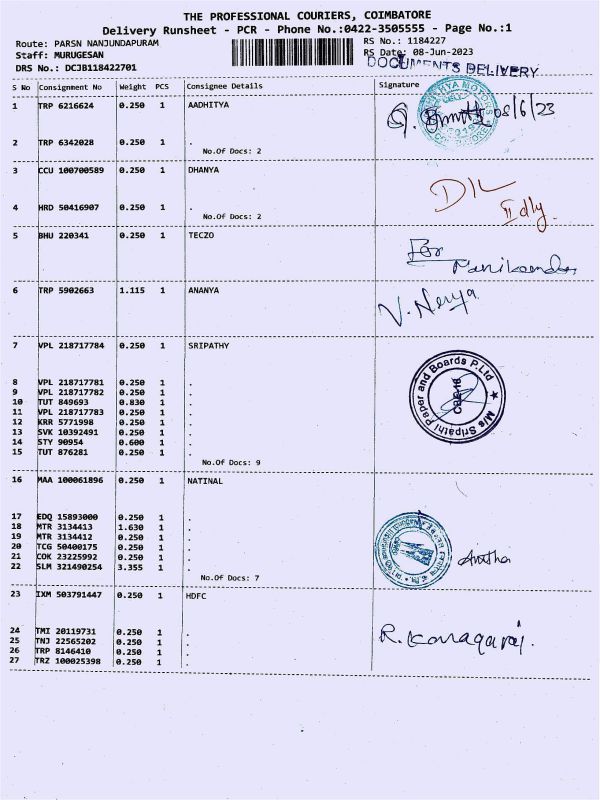 THE PROFESSIONAL COURIERS, COIMBATORE
Delivery Runsheet - PCR - Phone No.:0422-3505555 - Page No.:1
Route: PARSN NANJUNDAPURAM
RS No.: 1184227
Staff: MURUGESAN
RS Date: 08-Jun-2023
DRS No.: DCJB118422701
DOCUMENTS DELIVERY
S No Consignment No Weight PCS Consignee Details Signature
1 TRP 6216624 0.250 1 AADHITYA
08/6/23
2 TRP 6342028 0.250 1 .
No.Of Docs: 2
3 CCU 100700589 0.250 1 DHANYA
4 HRD 50416907 0.250 1 .
No.Of Docs: 2
5 BHU 220341 0.250 1 TECZO
For
Manikandan
6 TRP 5902663 1.115 1 ANANYA
V. Nerya
7 VPL 218717784 0.250 1 SRIPATHY
8 VPL 218717781 0.250 1 .
9 VPL 218717782 0.250 1 .
10 TUT 849693 0.830 1 .
11 VPL 218717783 0.250 1 .
12 KRR 5771998 0.250 1 .
13 SVK 10392491 0.250 1 .
14 STY 90954 0.600 1 .
15 TUT 876281 0.250 1 .
No.Of Docs: 9
M/s Sripathi Paper and Boards P.Ltd
16 MAA 100061896 0.250 1 NATINAL
17 EDQ 15893000 0.250 1 .
18 MTR 3134413 1.630 1 .
19 MTR 3134412 0.250 1 .
20 TCG 50400175 0.250 1 .
21 COK 23225992 0.250 1 .
22 SLM 321490254 3.355 1 .
No.Of Docs: 7
23 IXM 503791447 0.250 1 HDFC
24 TMI 20119731 0.250 1 .
25 TNJ 22565202 0.250 1 .
26 TRP 8146410 0.250 1 .
27 TRZ 100025398 0.250 1 .
R. Kanagaraj.